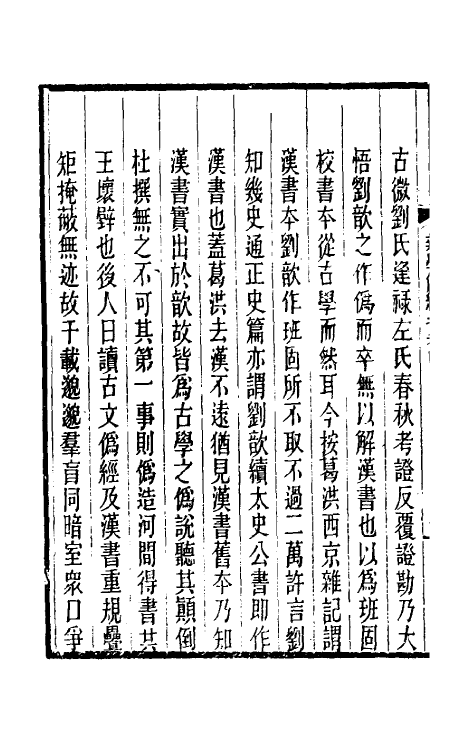 古微劉氏逢祿左氏春秋考證反覆證勘乃大
悟劉歆之作僞而卒無以解漢書也以爲班固
校書本從古學而然耳今按葛洪西京雜記謂
漢書本劉歆作班固所不取不過二萬許言劉
知幾史通正史篇亦謂劉歆續太史公書即作
漢書也蓋葛洪去漢不遠猶見漢書舊本乃知
漢書實出於歆故皆爲古學之僞說聽其顛倒
杜撰無之不可其第一事則僞造河間得書共
王壞壁也後人日讀古文僞經及漢書重規疊
矩掩蔽無迹故千載邈邈羣盲同暗室衆口爭